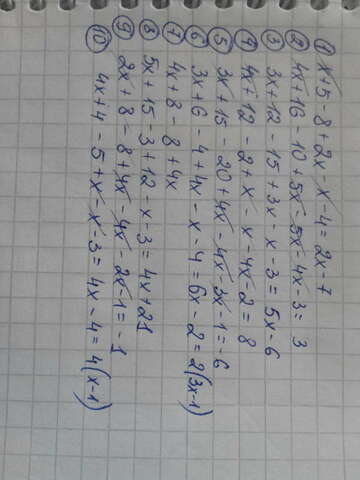 ① x+5-8+2x-x-4=2x-7
② 4x+16-10+5x-5x-4x-3= 3
③ 3x+12-15+3x-x-3=5x-6
④ 4x+12-2+x-x-4x-2=8
⑤ 3x+15-20+4x-4x-3x-1=-6
⑥ 3x+6-4+4x-x-4=6x-2=2(3x-1)
⑦ 4x+8-8+4x
⑧ 5x+15-3+12-x-3=4x+21
⑨ 2x+8-8+4x-4x-2x-1=-1
⑩ 4x+4-5+x-x-3=4x-4=4(x-1)